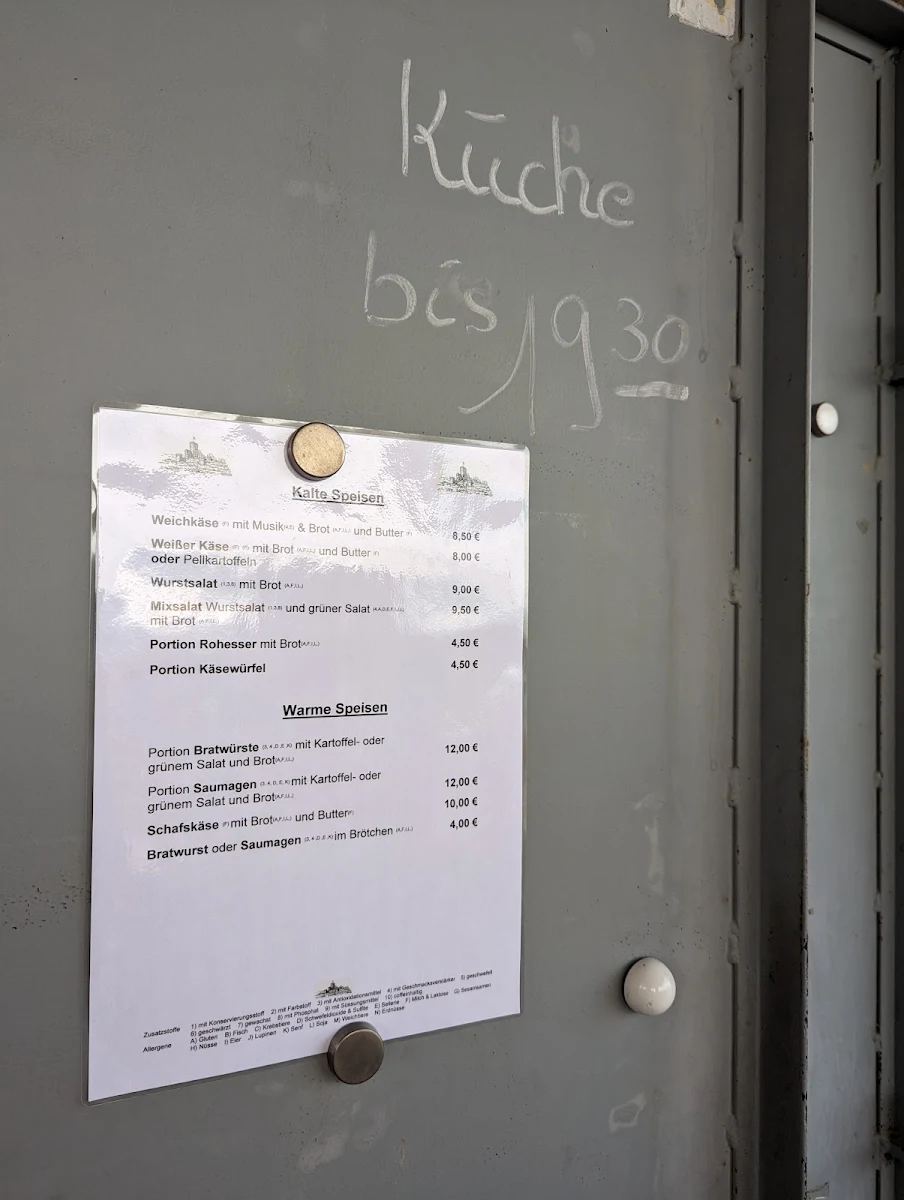 Küche
bis 19 30
Kalte Speisen
Weichkäse (F) mit Musik & Brot (A,F,I,L) und Butter (F) 8,50 €
Weißer Käse mit Brot (A,F,I,L) und Butter (F) 8,00 €
oder Pellkartoffeln
Wurstsalat (1,3,8) mit Brot (A,F,I,L) 9,00 €
Mixsalat Wurstsalat (1,3,8) und grüner Salat 9,50 €
mit Brot (A,F,I,L)
Portion Rohesser mit Brot (A,F,I,L) 4,50 €
Portion Käsewürfel 4,50 €
Warme Speisen
Portion Bratwürste (3, 4 ,D ,E ,K) mit Kartoffel- oder 12,00 €
grünem Salat und Brot (A,F,I,L)
Portion Saumagen (3, 4, D, E, K) mit Kartoffel- oder 12,00 €
grünem Salat und Brot (A,F,I,L)
Schafskäse (F) mit Brot (A,F,I,L) und Butter (F) 10,00 €
Bratwurst oder Saumagen (3, 4 ,D ,E ,K) im Brötchen (A,F,I,L) 4,00 €
Zusatzstoffe 1) mit Konservierungsstoff 2) mit Farbstoff 3) mit Antioxidationsmittel 4) mit Geschmacksverstärker 5) geschwefelt
6) geschwärzt 7) gewachst 8) mit Phosphat 9) mit Süssungsmittel 10) coffeinhaltig
Allergene A) Gluten B) Fisch C) Krebstiere D) Schwefeldioxide & Sulfite E) Sellerie F) Milch & Laktose G) Sesamsamen
H) Nüsse I) Eier J) Lupinen K) Senf L) Soja M) Weichtiere N) Erdnüsse